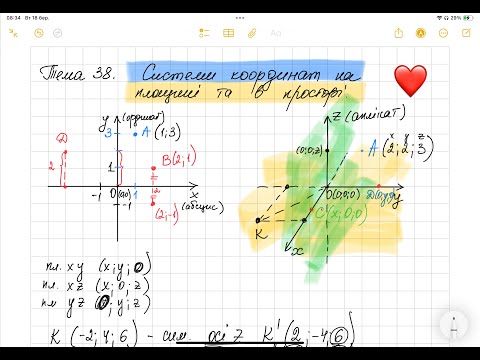 08:34 Вт 18 бер.
29%
Aa
Тема 38. Системи координат на
площині та в просторі.
y (ординат)
3 A (1;3)
D
2
1
B(2;1)
-1 0 (0;0) 1 2 x
(абсцис)
-1
(2;-1)
z (аплікат)
(0;0;z)
x y z
A (2; 2; 3)
O(0;0;0)
y
C (x; 0; 0)
K
x
пл. xy (x; y; 0)
пл. xz (x; 0; z)
пл. yz (0; y; z)
K (-2; 4; 6) - сим. осі z K' (2; -4; 6)